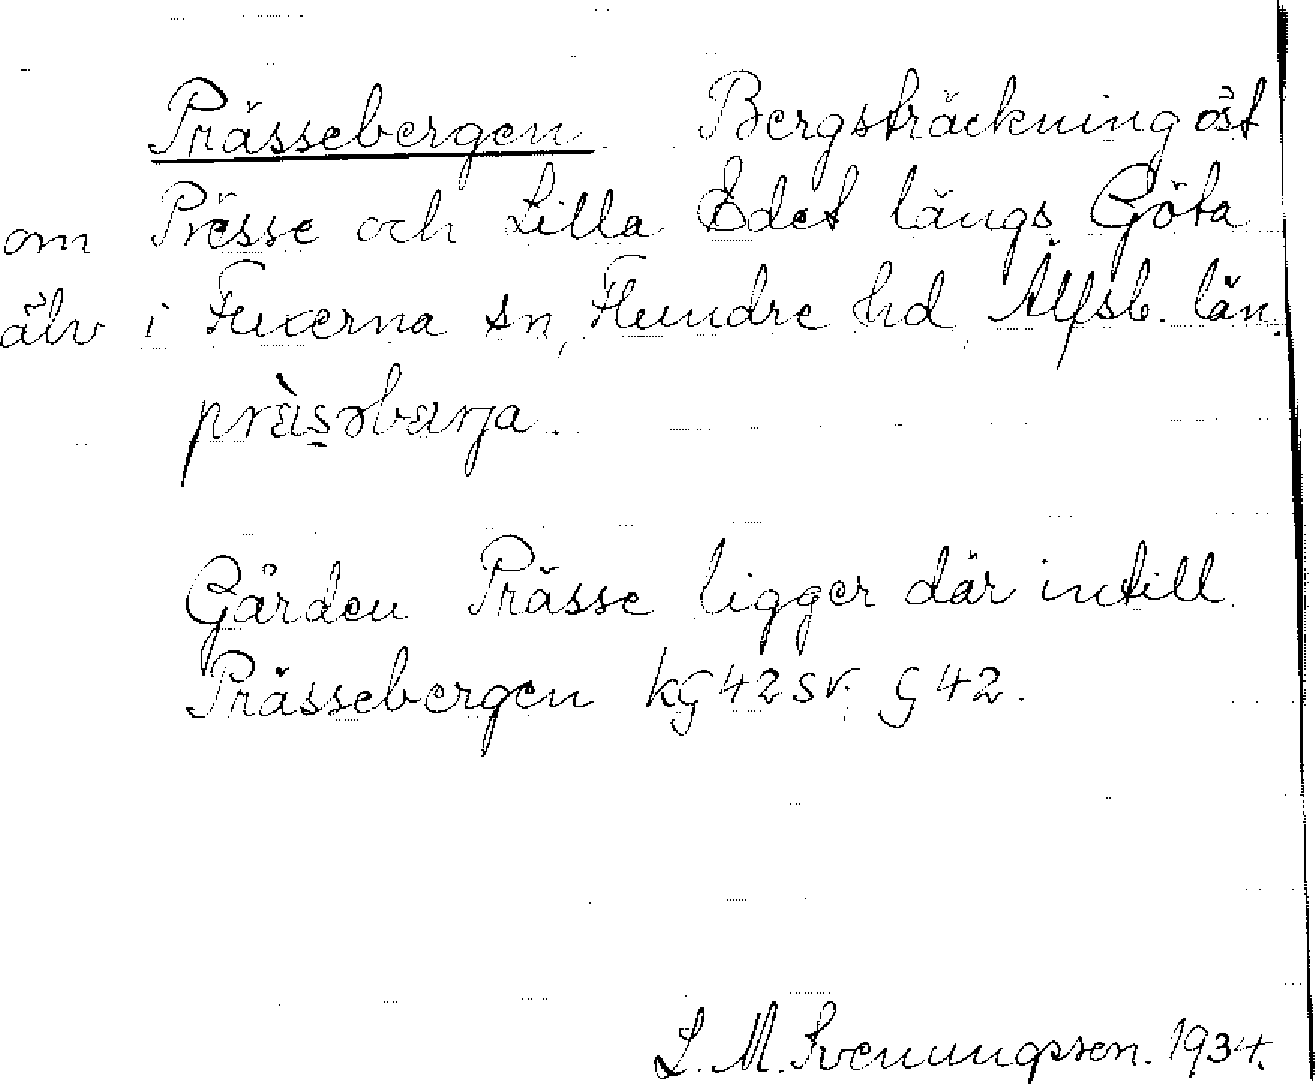 Prässebergen. Bergsträckning öst
om Prässe och Lilla Edet längs Göta
älv i Fuxerna sn, Flundre hd, Älfsb. län.
Gården Prässe ligger där intill.
Prässebergen kG 42 SV. G 42.
L. M. Svenungsson. 1934.